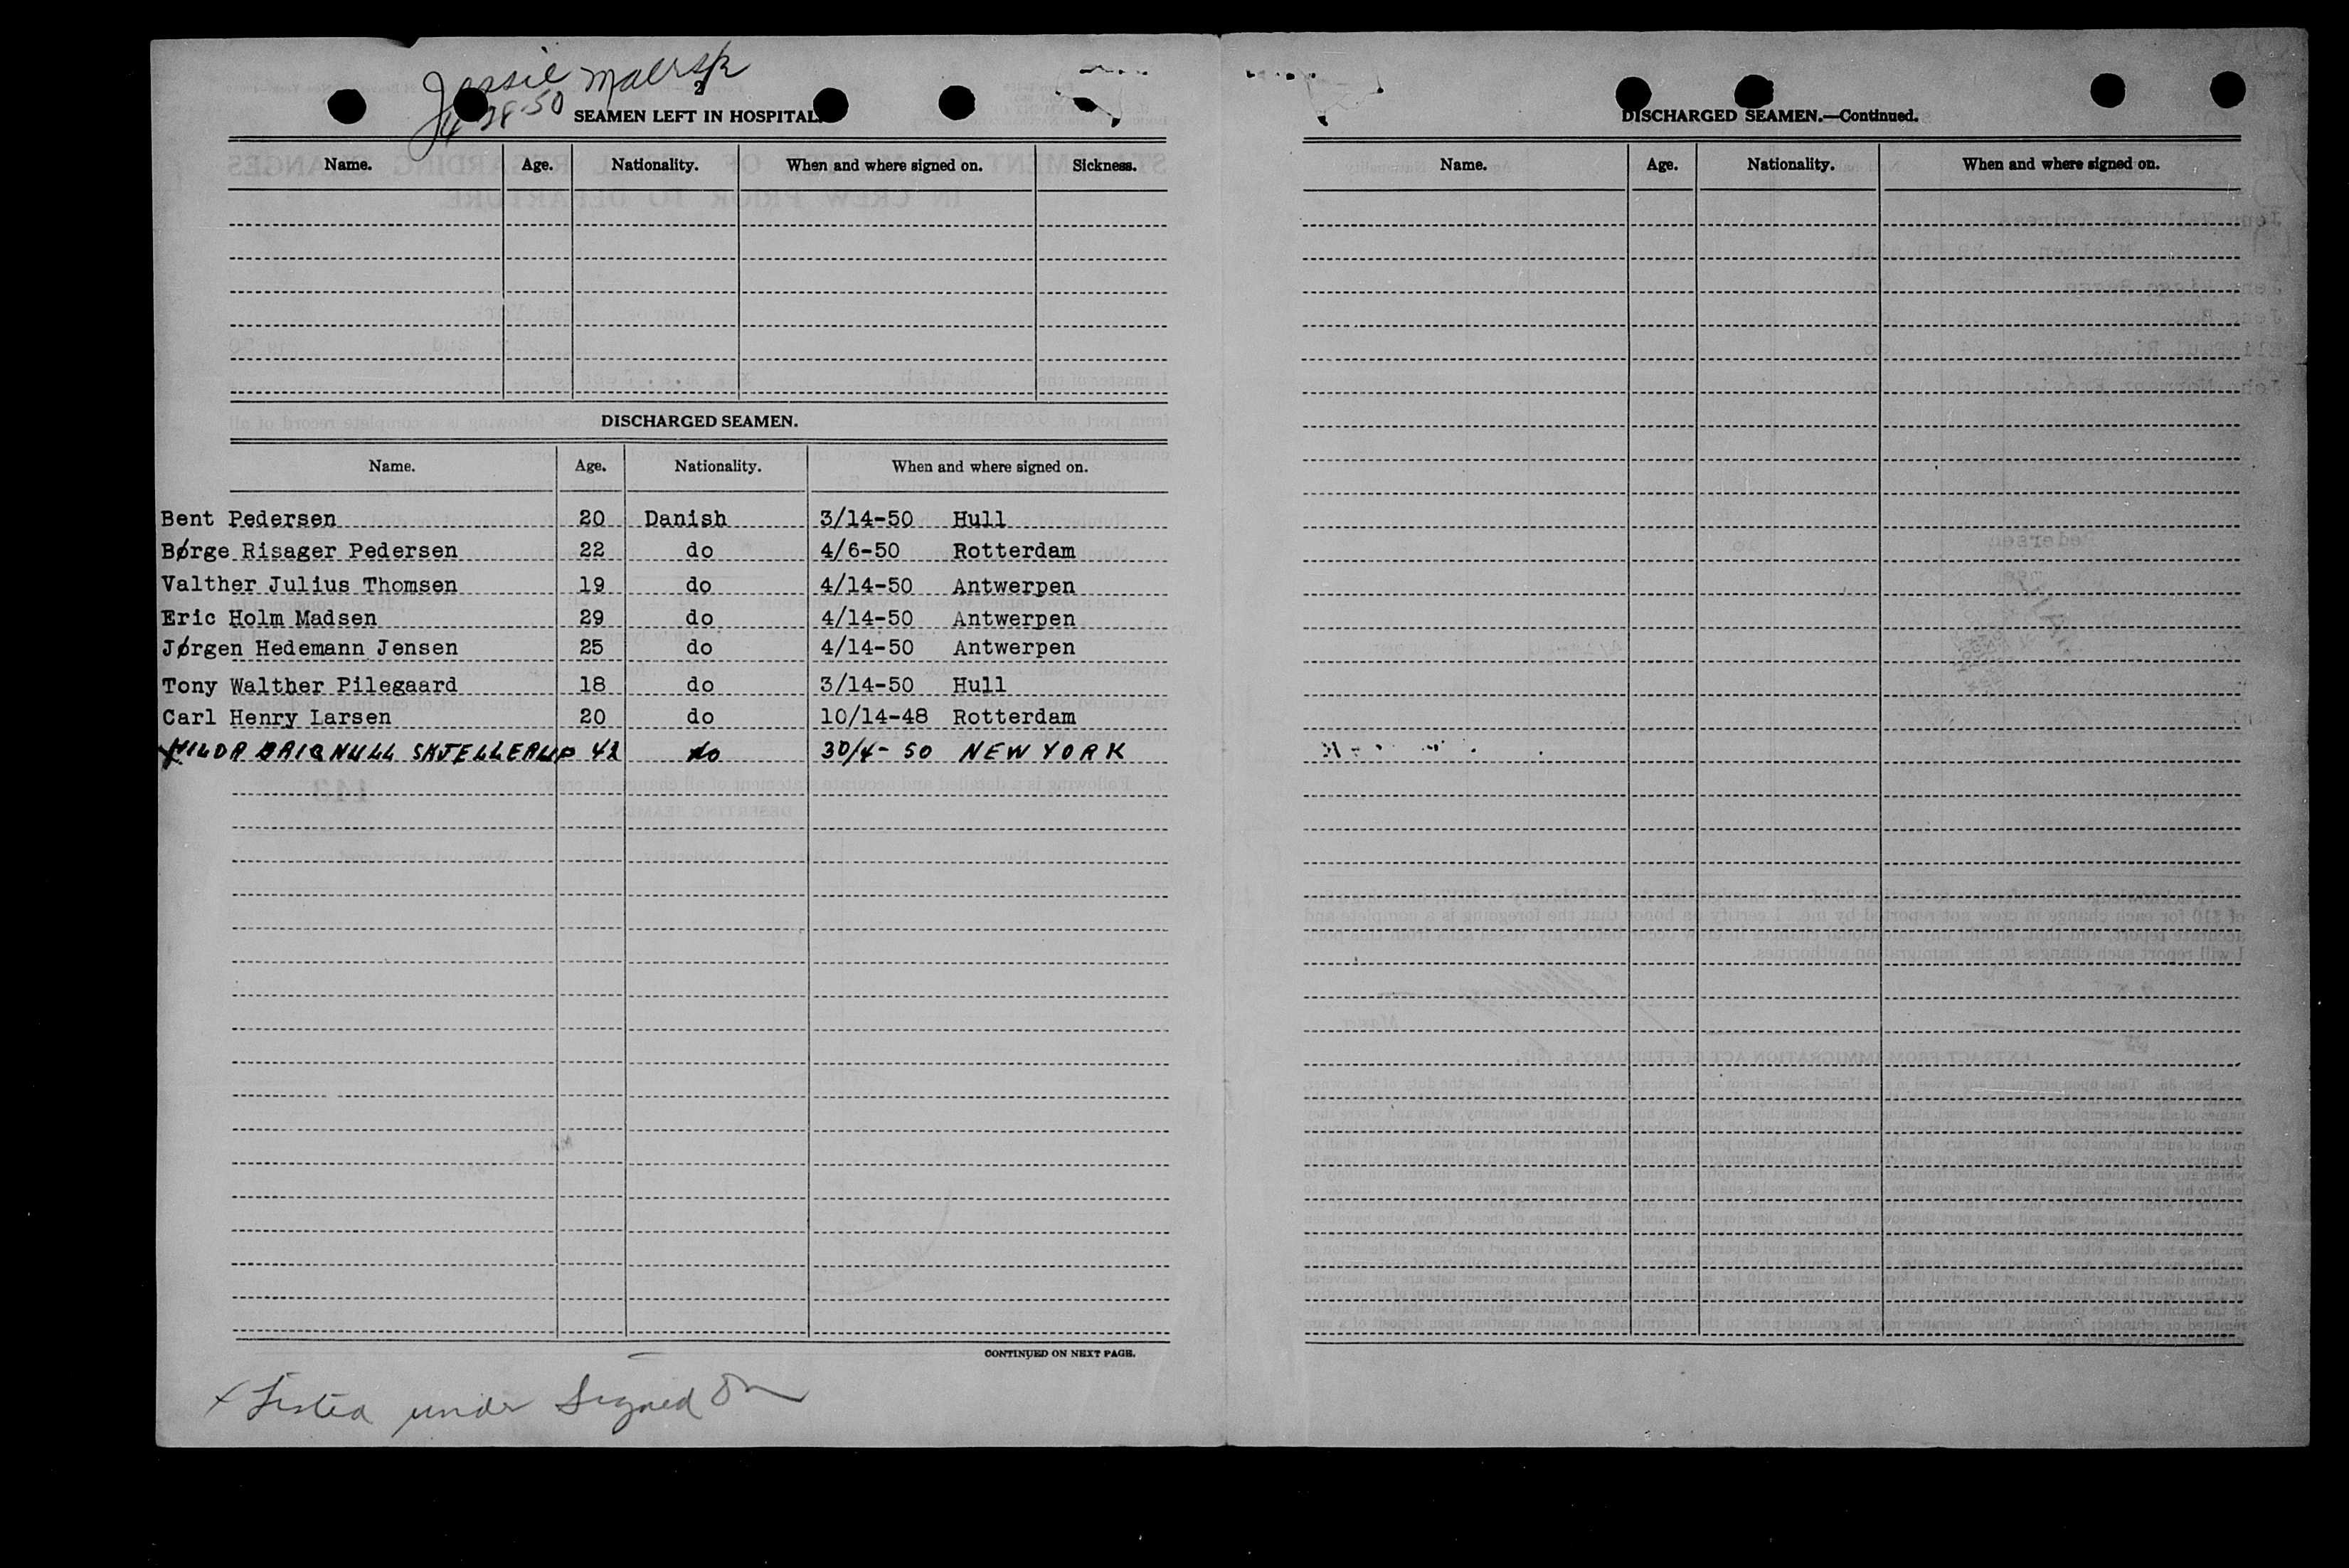 Jessie Maersk
4-28-50
2
SEAMEN LEFT IN HOSPITAL.
Name. Age. Nationality. When and where signed on. Sickness.
DISCHARGED SEAMEN.
Name. Age. Nationality. When and where signed on.
Bent Pedersen 20 Danish 3/14-50 Hull
Børge Risager Pedersen 22 do 4/6-50 Rotterdam
Valther Julius Thomsen 19 do 4/14-50 Antwerpen
Eric Holm Madsen 29 do 4/14-50 Antwerpen
Jørgen Hedemann Jensen 25 do 4/14-50 Antwerpen
Tony Walther Pilegaard 18 do 3/14-50 Hull
Carl Henry Larsen 20 do 10/14-48 Rotterdam
HILDA SKJELLERUP 42 do 30/4-50 NEW YORK
CONTINUED ON NEXT PAGE.
x Listed under Signed On
DISCHARGED SEAMEN.—Continued.
Name. Age. Nationality. When and where signed on.